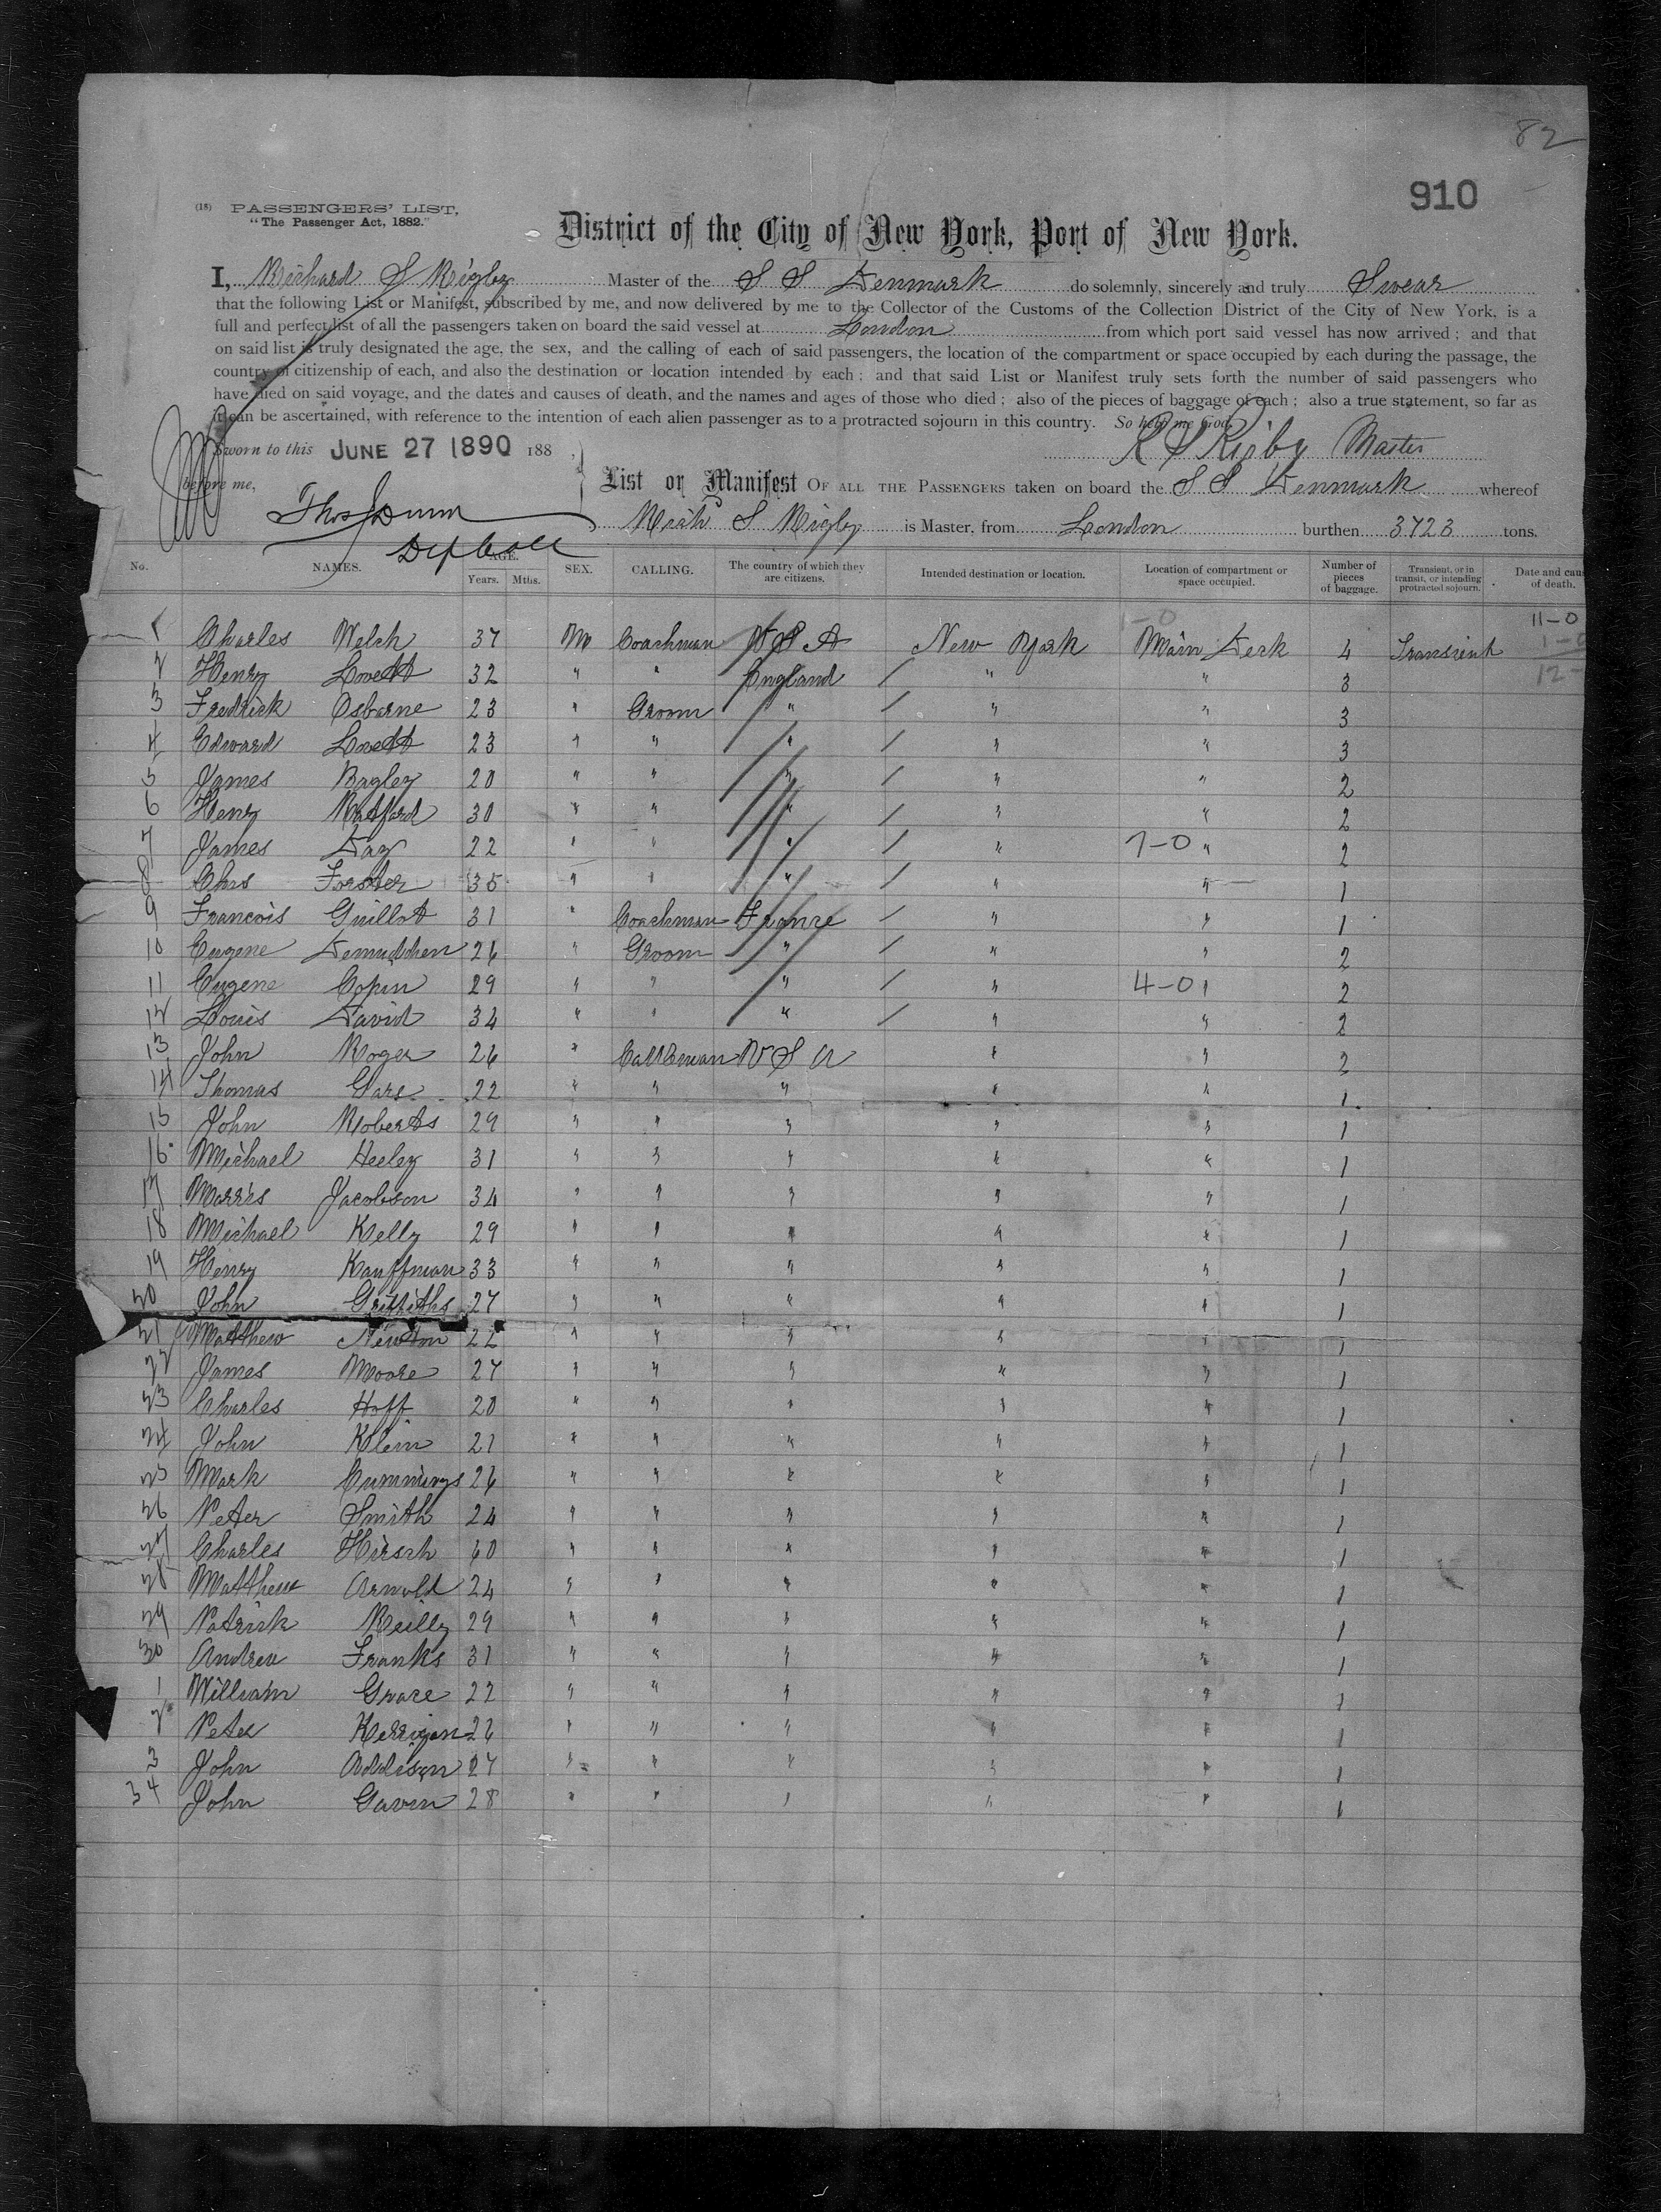 82
910
(18) PASSENGERS' LIST.
"The Passenger Act, 1882."
District of the City of New York, Port of New York.
I, Richard S Rigby Master of the S S Denmark do solemnly, sincerely and truly Swear
that the following List or Manifest, subscribed by me, and now delivered by me to the Collector of the Customs of the Collection District of the City of New York, is a
full and perfect list of all the passengers taken on board the said vessel at London from which port said vessel has now arrived; and that
on said list is truly designated the age, the sex, and the calling of each of said passengers, the location of the compartment or space occupied by each during the passage, the
country of citizenship of each, and also the destination or location intended by each; and that said List or Manifest truly sets forth the number of said passengers who
have died on said voyage, and the dates and causes of death, and the names and ages of those who died; also of the pieces of baggage of each; also a true statement, so far as
it can be ascertained, with reference to the intention of each alien passenger as to a protracted sojourn in this country. So help me God.
Sworn to this JUNE 27 1890 188 , R S Rigby Master
before me, List or Manifest OF ALL THE PASSENGERS taken on board the S S Denmark whereof
Thos Dunn Richd S Rigby is Master, from London burthen 3723 tons.
Dep Coll
No. NAMES. AGE. Years. Mths. SEX. CALLING. The country of which they are citizens. Intended destination or location. Location of compartment or space occupied. Number of pieces of baggage. Transient, or in transit, or intending protracted sojourn. Date and cau of death.
1-0 11-0
1 Charles Welch 37 M Coachman U S A New York Main Deck 4 Transient 1-0
2 Henry Lovett 32 " " England / " " 3 12-
3 Fredrick Osborne 23 " Groom " / " " 3
4 Edward Lovett 23 " " " / " " 3
5 James Bagley 20 " " " / " " 2
6 Henry Batford 30 " " " / " " 2
7 James Day 22 " " " / " 7-0 " 2
8 Chrs Forster 35 " " " / " " 1
9 Francois Guillot 31 " Coachman France / " " 1
10 Eugene Demudchen 26 " Groom " / " " 2
11 Eugene Copin 29 " " " / " 4-0 " 2
12 Louis David 34 " " " / " " 2
13 John Roger 26 " Cattleman U S A " " 2
14 Thomas Gars 22 " " " " " 1
15 John Roberts 29 " " " " " 1
16 Michael Heeley 31 " " " " " 1
17 Morris Jacobson 34 " " " " " 1
18 Michael Kelly 29 " " " " " 1
19 Henry Kauffman 33 " " " " " 1
20 John Griffiths 27 " " " " " 1
21 Matthew Newton 22 " " " " " 1
22 James Moore 27 " " " " " 1
23 Charles Hoff 20 " " " " " 1
24 John Klein 21 " " " " " 1
25 Mark Cummings 26 " " " " " 1
26 Peter Smith 24 " " " " " 1
27 Charles Hirsch 40 " " " " " 1
28 Matthew Arnold 24 " " " " " 1
29 Patrick Reilly 29 " " " " " 1
30 Andrew Franks 31 " " " " " 1
1 William Grace 22 " " " " " 1
2 Peter Kerrigan 26 " " " " " 1
3 John Addison 27 " " " " " 1
34 John Gavin 28 " " " " " 1